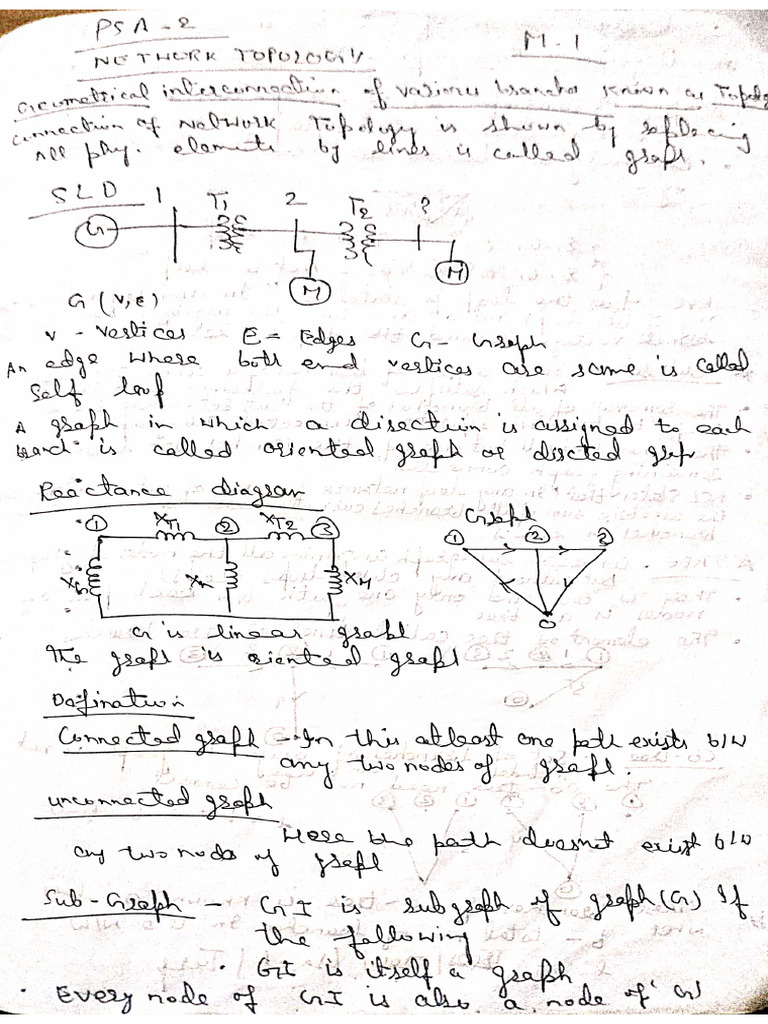 PSA-2
M-1
NETWORK TOPOLOGY
Geometrical interconnection of various branches known as Topology
connection of Network Topology is shown by replacing
all phy. elements by lines is called graph.
SLD 1 T1 2 T2 3
G
M
M
G (V,E)
V - vertices E = Edges G - Graph
An edge where both end vertices are same is called
self loop
A graph in which a direction is assigned to each
branch is called oriented graph or directed grap
Reactance diagram
Graph
① XT1 ② XT2 ③
① ② 3
XG Xm XM
0
G is linear graph
The graph is oriented graph
Defination
Connected graph - In this atleast one path exists b/w
any two nodes of graph.
unconnected graph
Here the path doesnot exist b/w
any two node of graph
Sub-Graph - GI is subgraph of graph (G) If
the following
• GI is itself a graph
• Every node of GI is also a node of G